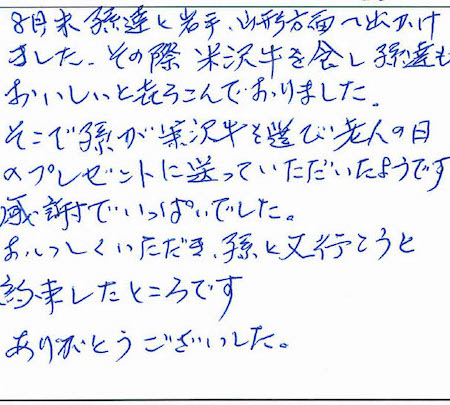 8月末孫達と岩手、山形方面へ出かけ
ました。その際米沢牛を食し孫達も
おいしいと喜ろこんでおりました。
そこで孫が米沢牛を選び老人の日
のプレゼントに送っていただいたようです
感謝でいっぱいでした。
おいしくいただき、孫と又行こうと
約束したところです
ありがとうございした。